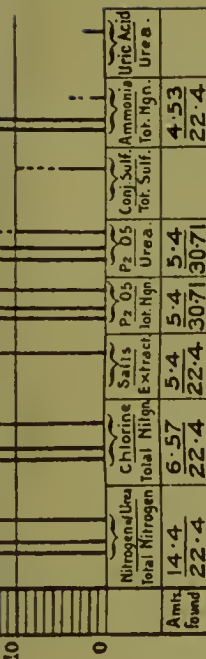 10
0
Nitrogen of Urea
Total Nitrogen
Chlorine
Total Nitgn.
Salts
Extract.
P2 O5
Tot. Ngn.
P2 O5
Urea.
Conj Sulf.
Tot. Sulf.
Ammonia
Tot. Ngn.
Uric Acid
Urea.
Amts. found
14.4 6.57 5.4 5.4 5.4 4.53
22.4 22.4 22.4 30.71 30.71 22.4